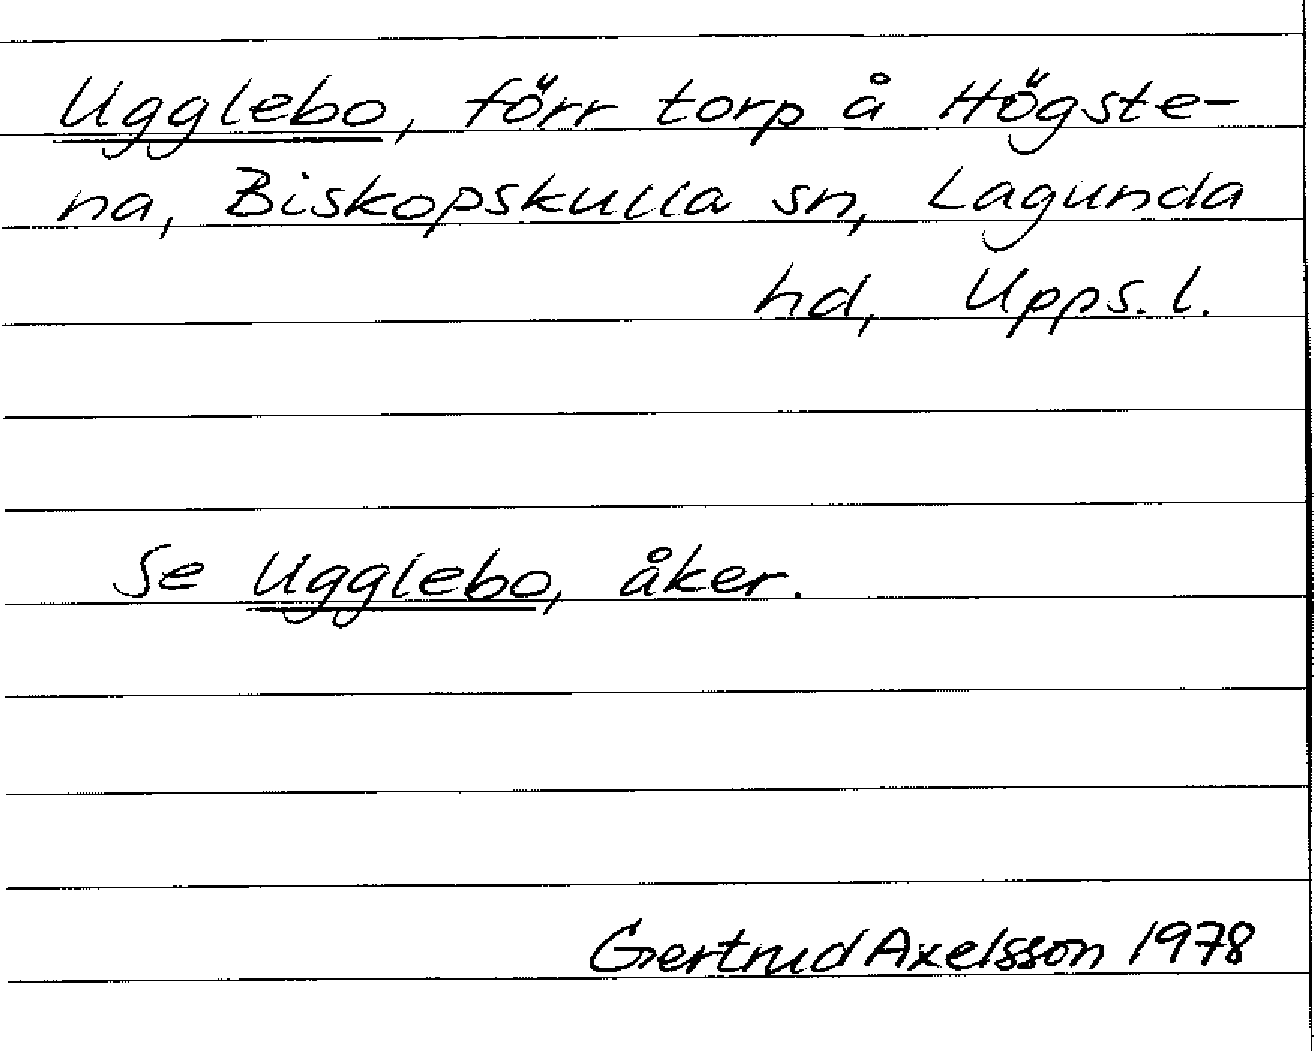 Ugglebo, förr torp å Högste-
na, Biskopskulla sn, Lagunda
hd, Upps. l.
Se Ugglebo, åker.
Gertrud Axelsson 1978